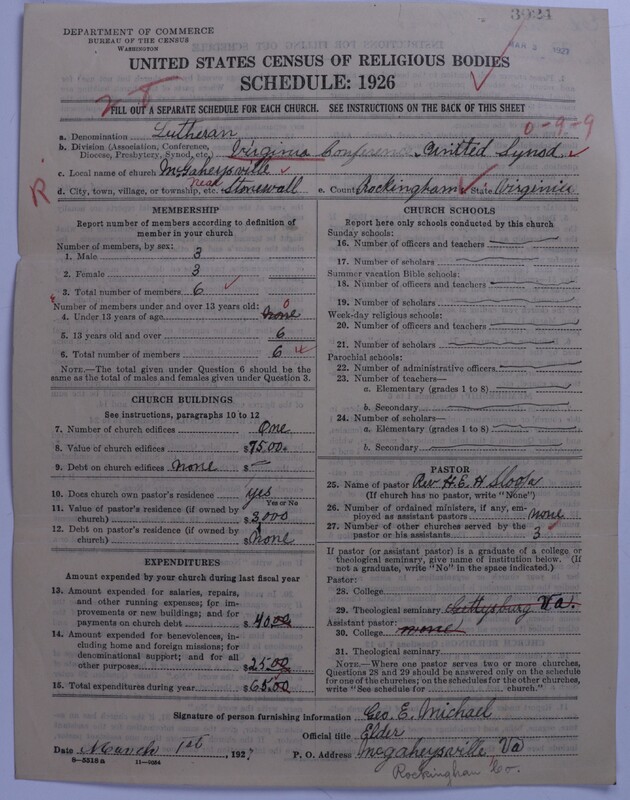 3924
DEPARTMENT OF COMMERCE
BUREAU OF THE CENSUS
WASHINGTON
MAR 3 1927
UNITED STATES CENSUS OF RELIGIOUS BODIES
SCHEDULE: 1926
FILL OUT A SEPARATE SCHEDULE FOR EACH CHURCH. SEE INSTRUCTIONS ON THE BACK OF THIS SHEET
0-9-9
a. Denomination Lutheran
b. Division (Association, Conference, Diocese, Presbytery, Synod, etc.) Virginia Conference, Unitted Synod
c. Local name of church McGaheysville
R
d. City, town, village, or township, etc. near Stonewall e. County Rockingham State Virginia
MEMBERSHIP
Report number of members according to definition of
member in your church
Number of members, by sex:
1. Male 3
2. Female 3
3. Total number of members 6
Number of members under and over 13 years old:
0
4. Under 13 years of age none
5. 13 years old and over 6
6. Total number of members 6
NOTE.—The total given under Question 6 should be the
same as the total of males and females given under Question 3.
CHURCH BUILDINGS
See instructions, paragraphs 10 to 12
7. Number of church edifices One
8. Value of church edifices $75.00
9. Debt on church edifices none $ —
10. Does church own pastor's residence yes
Yes or No
11. Value of pastor's residence (if owned by
church) $3,000
12. Debt on pastor's residence (if owned by
church) $None
EXPENDITURES
Amount expended by your church during last fiscal year
13. Amount expended for salaries, repairs,
and other running expenses; for im-
provements or new buildings; and for
payments on church debt $40.00
14. Amount expended for benevolences, in-
cluding home and foreign missions; for
denominational support; and for all
other purposes $25.00
15. Total expenditures during year $65.00
CHURCH SCHOOLS
Report here only schools conducted by this church
Sunday schools:
16. Number of officers and teachers
17. Number of scholars
Summer vacation Bible schools:
18. Number of officers and teachers
19. Number of scholars
Week-day religious schools:
20. Number of officers and teachers
21. Number of scholars
Parochial schools:
22. Number of administrative officers
23. Number of teachers—
a. Elementary (grades 1 to 8)
b. Secondary
24. Number of scholars—
a. Elementary (grades 1 to 8)
b. Secondary
PASTOR
25. Name of pastor Rev H. E. H. Sloop
(If church has no pastor, write "None")
26. Number of ordained ministers, if any, em-
ployed as assistant pastors none
27. Number of other churches served by the
pastor or his assistants 3
If pastor (or assistant pastor) is a graduate of a college or
theological seminary, give name of institution below. (If
not a graduate, write "No" in the space indicated.)
Pastor:
28. College
29. Theological seminary Gettysburg Va.
Assistant pastor:
30. College none
31. Theological seminary
NOTE.—Where one pastor serves two or more churches,
Questions 28 and 29 should be answered only on the schedule
for one of the churches; on the schedules for the other churches,
write "See schedule for church."
Signature of person furnishing information Geo. E. Michael
Official title Elder
Date March 1st, 1927 P. O. Address McGaheysville Va
8-5518 a 11-9084
Rockingham Co.